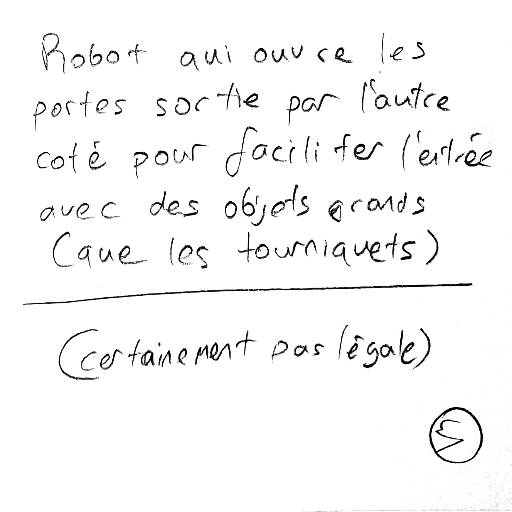 Robot qui ouvre les
portes sortie par l'autre
coté pour faciliter l'entrée
avec des objets grands
(que les tourniquets)
(certainement pas légale)